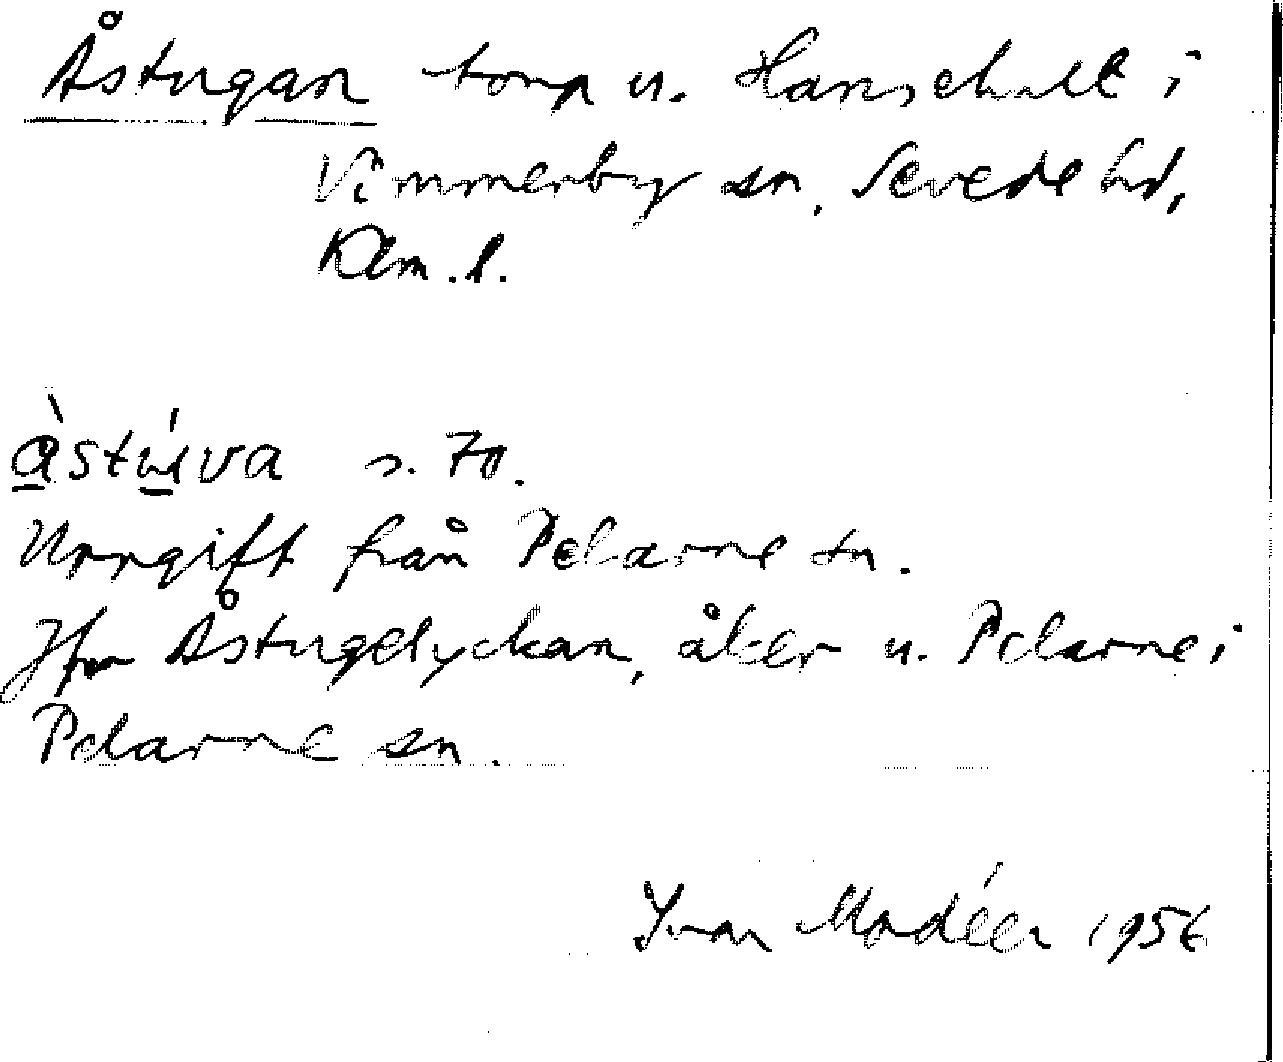 Åstugan torp u. Hanschult i
Vimmerby sn, Sevede hd,
Klm. l.
àstúva s. 70.
Uppgift från Pelarne sn.
Jfr Åstugelyckan, åker u. Pelarne i
Pelarne sn.
Ivar Modéer 1956